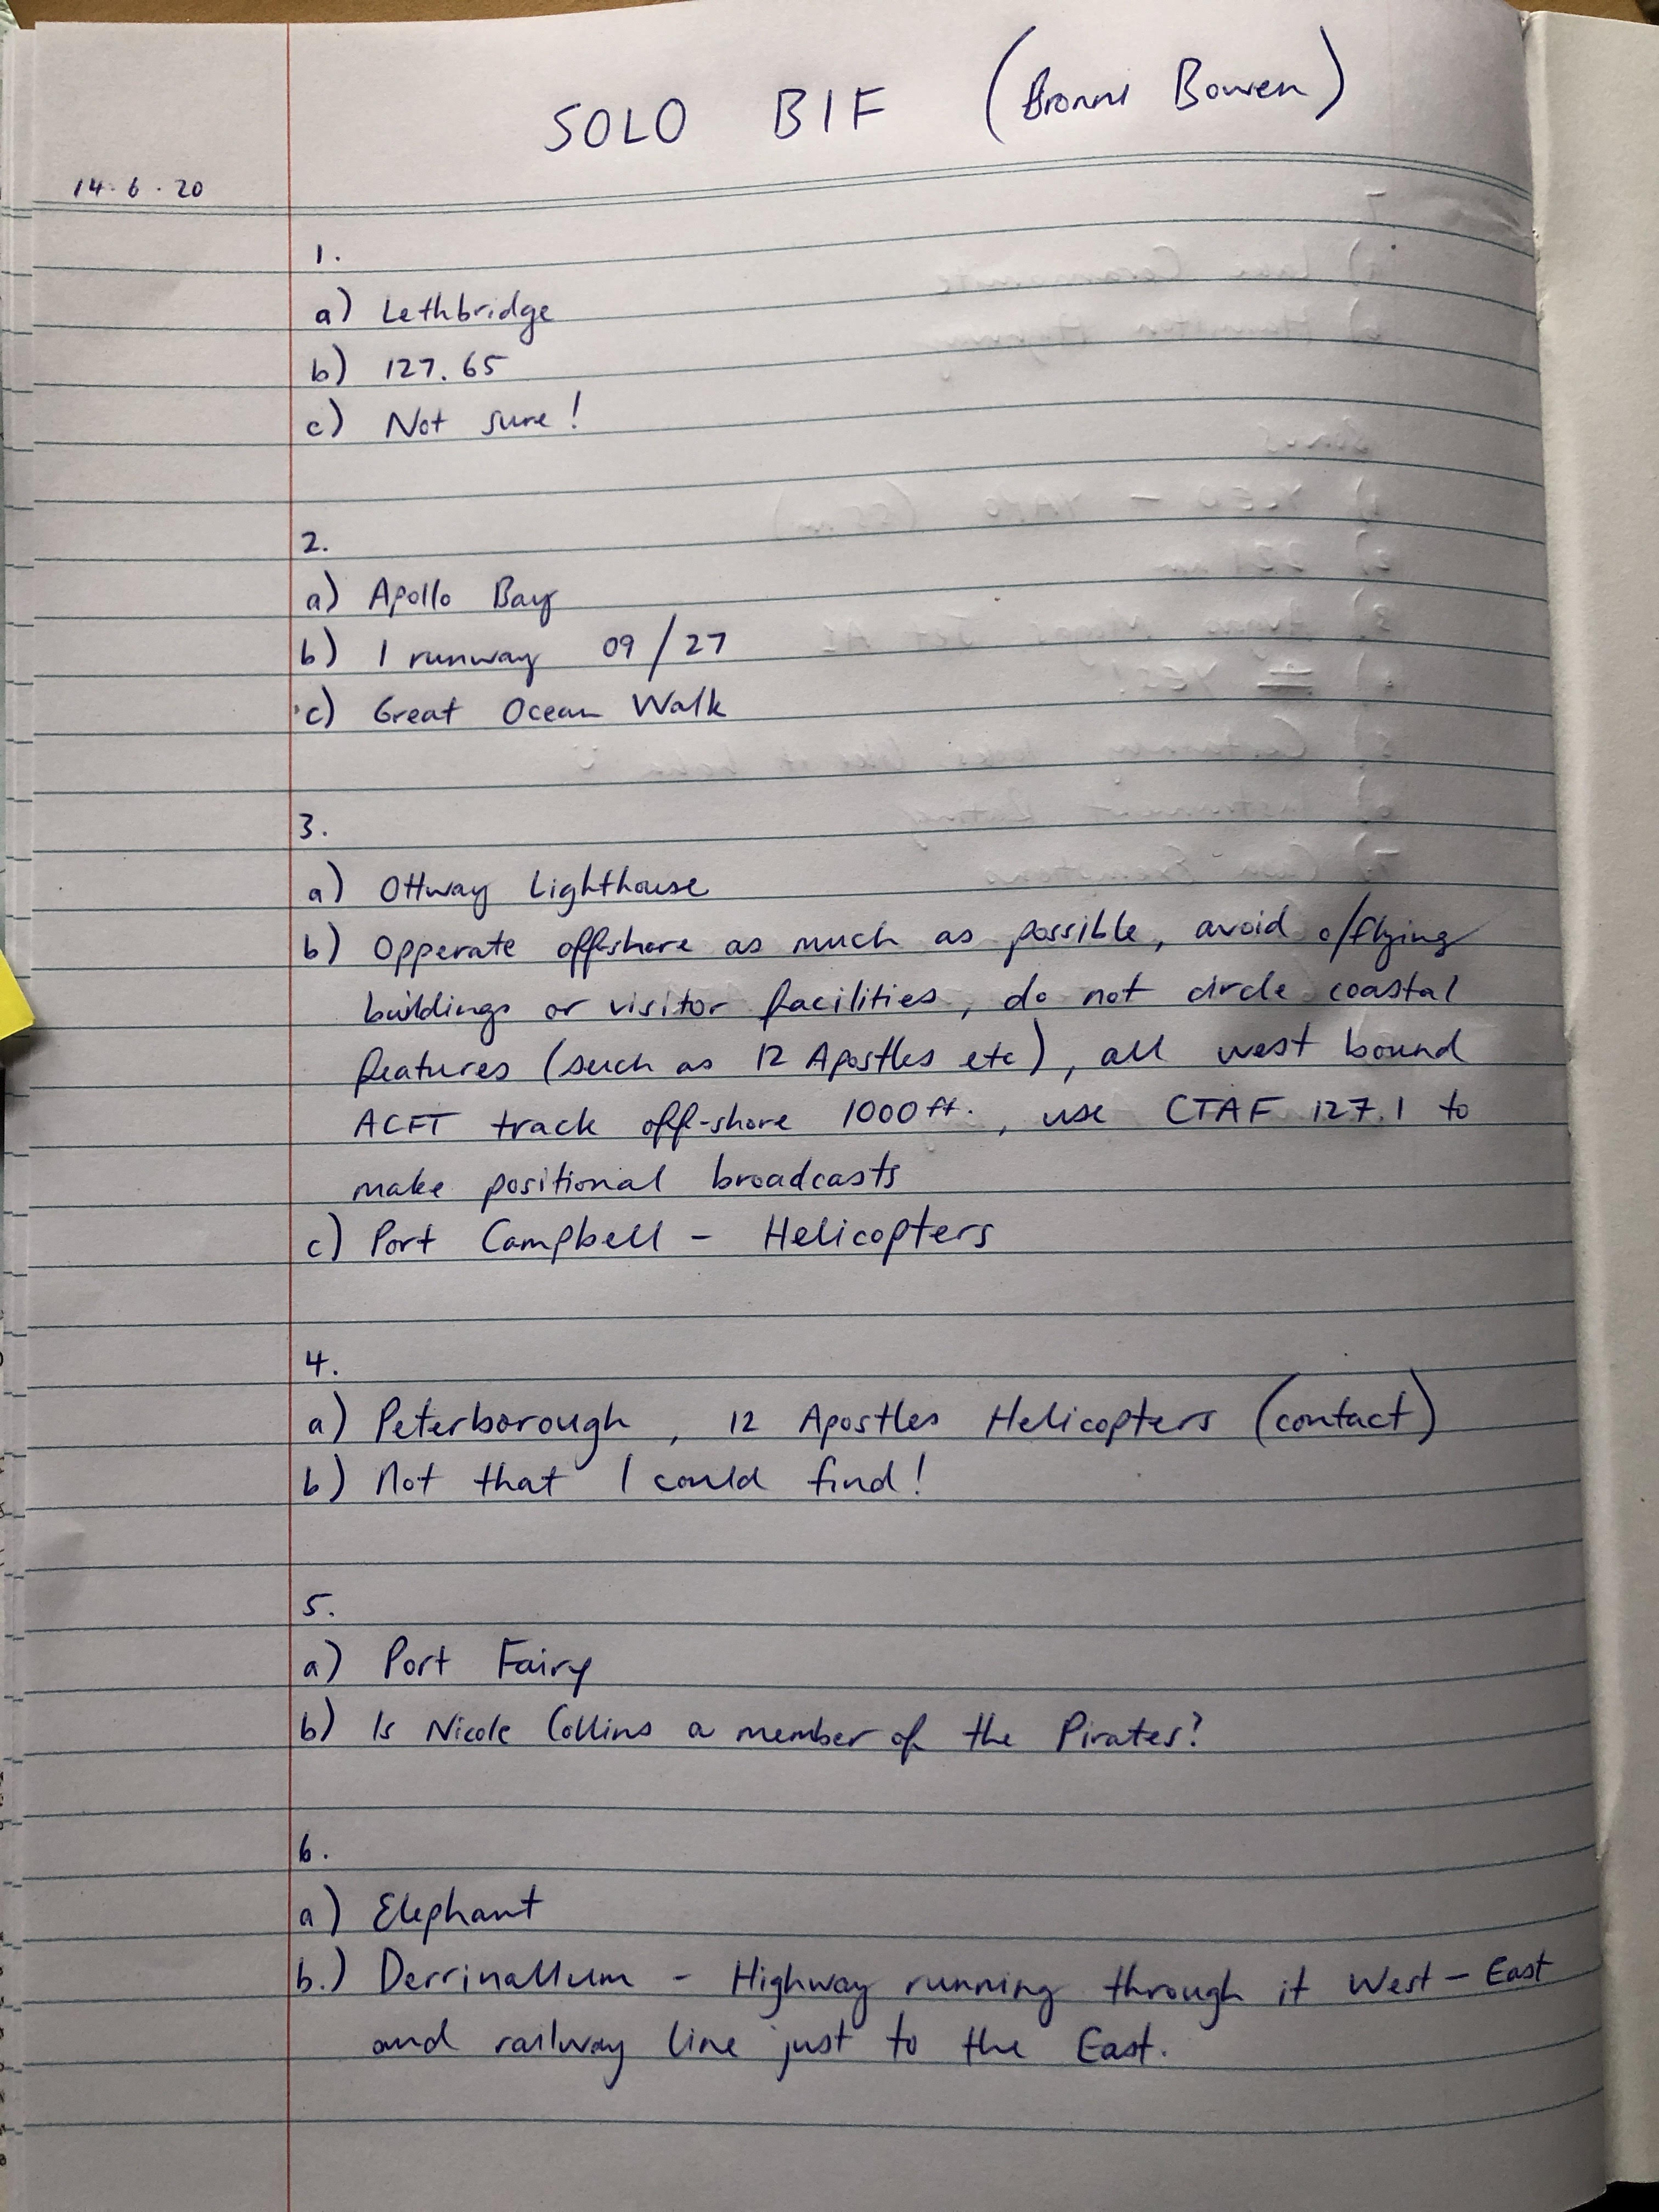 SOLO BIF (Bronni Bowen)
14.6.20
1.
a) Lethbridge
b) 127.65
c) Not sure!
2.
a) Apollo Bay
b) 1 runway 09/27
c) Great Ocean Walk
3.
a) Ottway Lighthouse
b) Opperate off-shore as much as possible, avoid o/flying
buildings or visitor facilities, do not circle coastal
features (such as 12 Apostles etc), all west bound
ACFT track off-shore 1000ft., use CTAF 127.1 to
make positional broadcasts
c) Port Campbell - Helicopters
4.
a) Peterborough, 12 Apostles Helicopters (contact)
b) Not that I could find!
5.
a) Port Fairy
b) Is Nicole Collins a member of the Pirates?
6.
a) Elephant
b.) Derrinallum - Highway running through it West - East
and railway line just to the East.